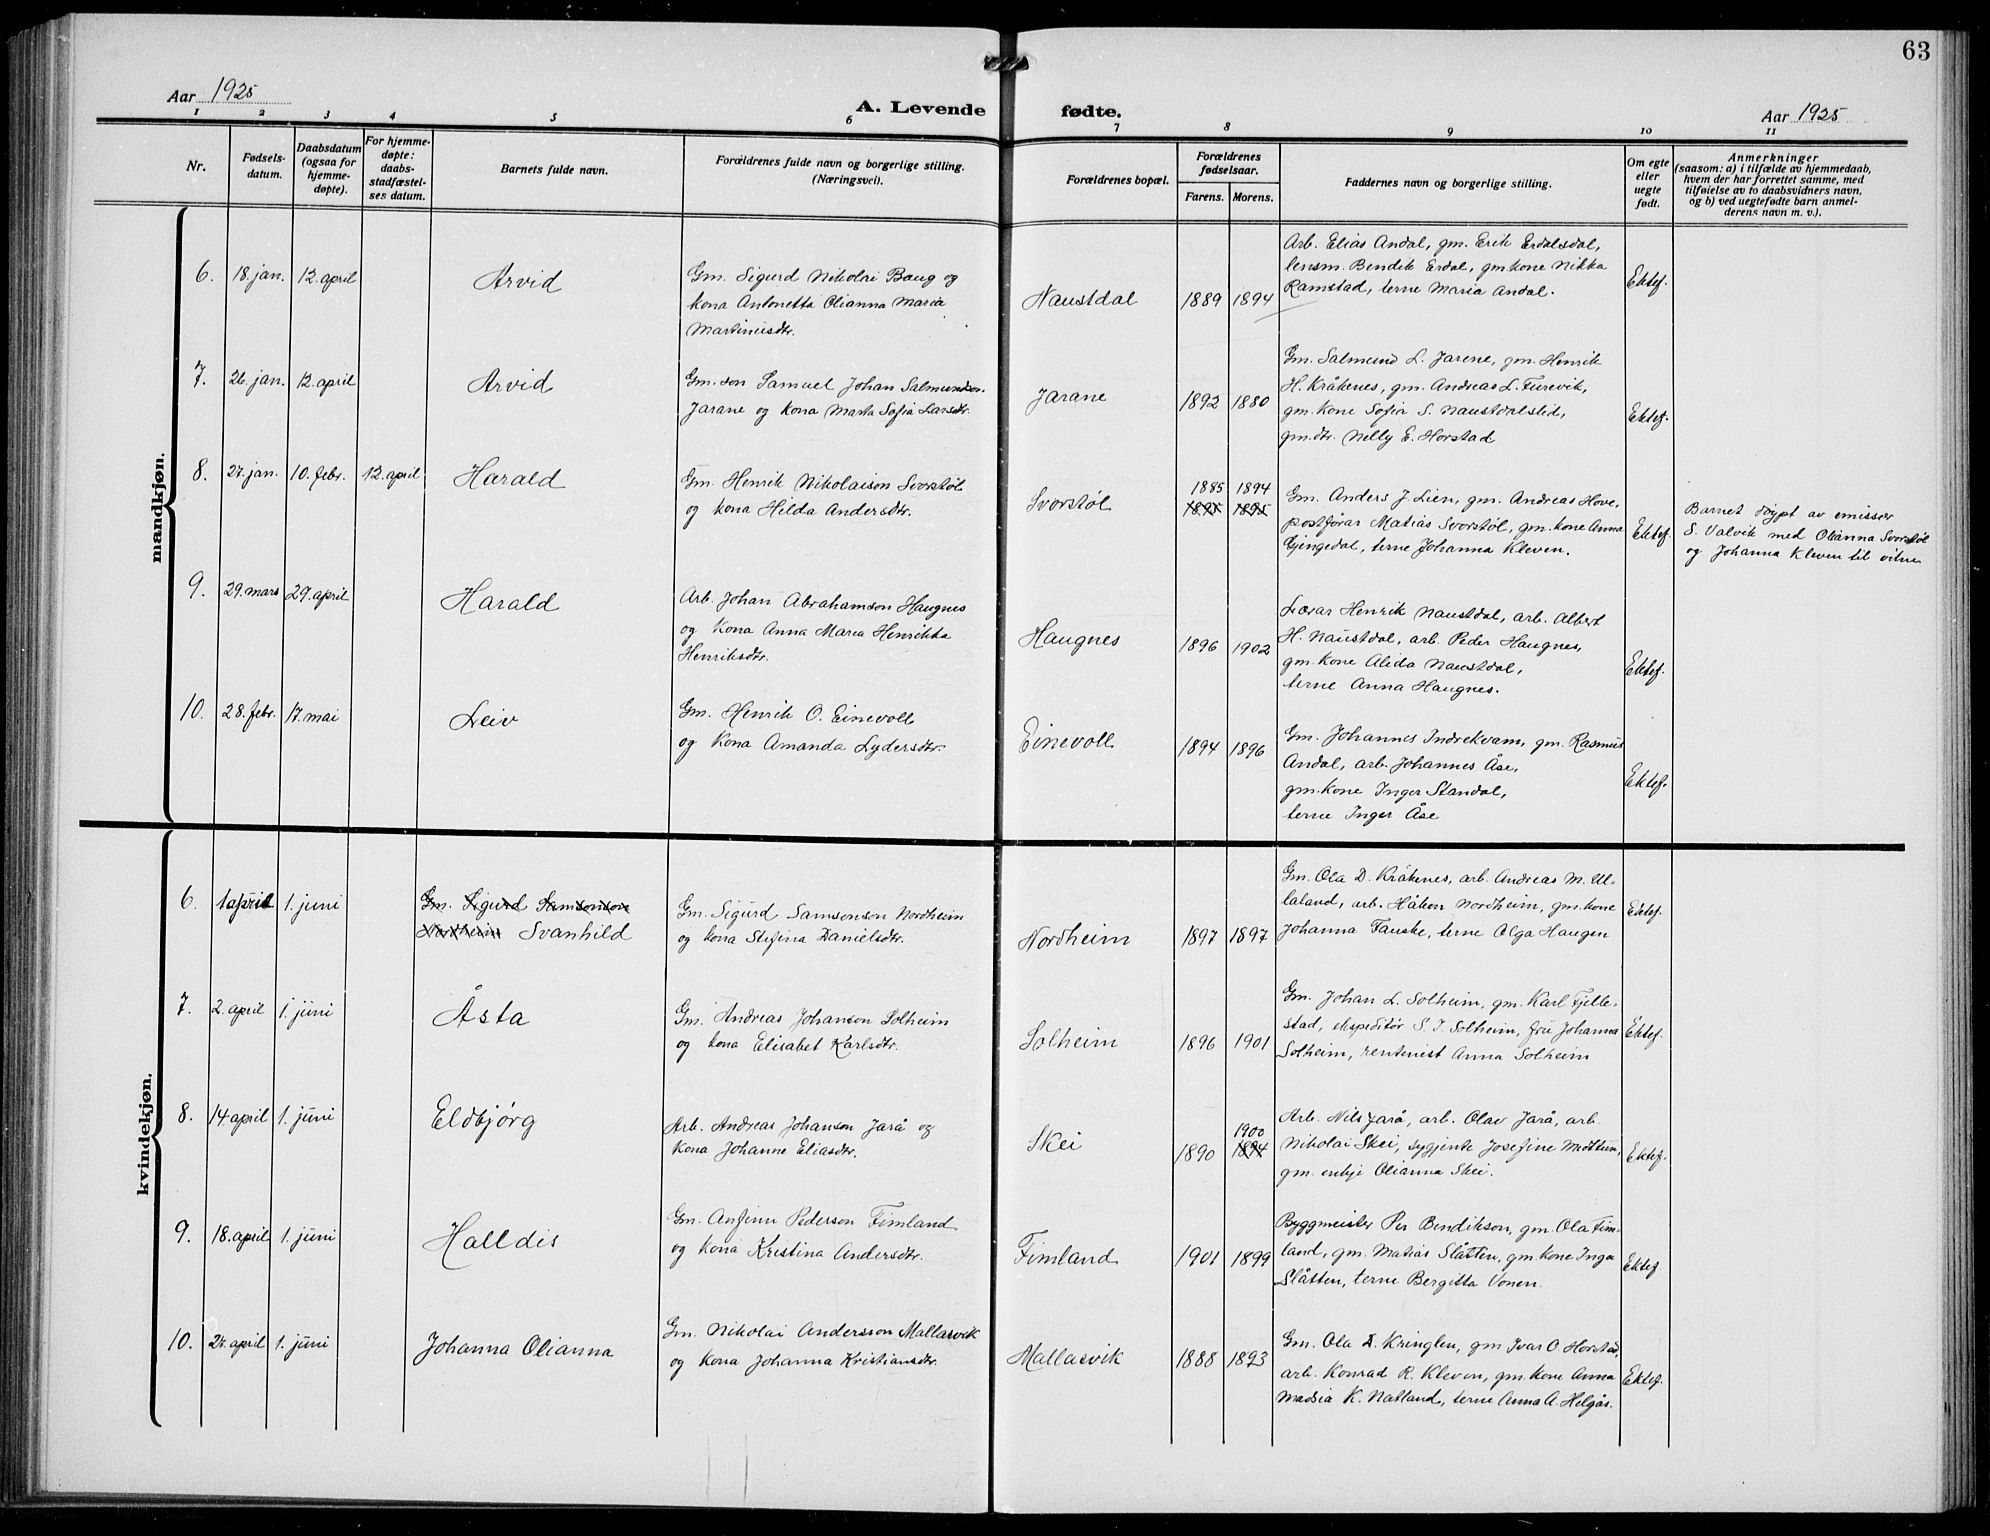 63
Aar 1925
A. Levende fødte.
Aar 1925
1 2 3 4 5 6 7 8 9 10 11
Nr.
Fødsels-
datum.
Daabsdatum
(ogsaa for
hjemme-
døpte).
For hjemme-
døpte:
daabs-
stadfæstel-
ses datum.
Barnets fulde navn.
Forældrenes fulde navn og borgerlige stilling.
(Næringsvei).
Forældrenes bopæl.
Forældrenes
fødselsaar.
Farens. Morens.
Faddernes navn og borgerlige stilling.
Om egte
eller
uegte
født.
Anmerkninger
(saasom: a) i tilfælde av hjemmedaab,
hvem der har forrettet samme, med
tilføielse av to daabsvidners navn,
og b) ved uegtefødte barn anmel-
derens navn m. v.).
mandkjøn.
6. 18. jan. 12. april
Arvid
Gm. Sigurd Nikolai Baug og
kona Antonetta Olianna Maria
Martinusdtr.
Naustdal
1889 1894
Arb. Elias Andal, gm. Erik Erdalsdal,
lensm. Bendik Erdal, gm.kone Nikka
Ramstad, terne Maria Andal.
Ektef.
7. 26. jan. 12. april
Arvid
Gm. son Samuel Johan Salmundson
Jarane og kona Marta Sofia Larsdtr.
Jarane
1892 1880
Gm. Salmund L. Jarene, gm. Henrik
H. Kråkenes, gm. Andreas L. Furevik,
gm.kone Sofia S. Naustdalslid,
gm.dtr. Nelly E. Horstad
Ektef.
8. 27. jan. 10. febr. 12. april
Harald
Gm. Henrik Nikolaison Svorstøl
og kona Hilda Andersdtr.
Svorstøl
1885 1894
1895 1895
Gm. Anders J. Lien, gm. Andreas Hove,
postførar Matias Svorstøl, gm.kone Anna
Gjengedal, terne Johanna Kleven.
Ektef.
Barnet døypt av emissær
S. Valvik med Olianna Svorstøl
og Johanna Kleven til vitne
9. 29. mars 29. april
Harald
Arb. Johan Abrahamson Haugnes
og kona Anna Maria Henrikka
Henriksdtr.
Haugnes
1896 1902
Lærar Henrik Naustdal, arb. Albert
H. Naustdal, arb. Peder Haugnes,
gm.kone Alida Naustdal,
terne Anna Haugnes.
Ektef.
10. 28. febr. 17. mai
Leiv
Gm. Henrik O. Einevoll
og kona Amanda Lydersdtr.
Einevoll
1894 1896
Gm. Johannes Indrekvam, gm. Rasmus
Andal, arb. Johannes Åse,
gm.kone Inger Standal,
terne Inger Åse
Ektef.
kvindekjøn.
6. 1 april 1. juni
Gm. Sigurd Samsonson
Nordheim Svanhild
Gm. Sigurd Samsonson Nordheim
og kona Stefina Danielsdtr.
Nordheim
1897 1897
Gm. Ola D. Kråkenes, arb. Andreas M. Ul-
laland, arb. Håkon Nordheim, gm.kone
Johanna Fauske, terne Olga Haugen
Ektef.
7. 2. april 1. juni
Åsta
Gm. Andreas Johanson Solheim
og kona Elisabet Karlsdtr.
Solheim
1896 1901
Gm. Johan L. Solheim, gm. Karl Fjelle-
stad, ekspeditør S. J. Solheim, fru Johanna
Solheim, rentenist Anna Solheim
Ektef.
8. 14 april 1. juni
Eldbjørg
Arb. Andreas Johanson Jarå og
kona Johanne Eliasdtr.
Skei
1900
1890 1894
Arb. Nils Jarå, arb. Olav Jarå, arb.
Nikolai Skei, sygjente Josefine Midttun,
gm. enkje Olianna Skei.
Ektef.
9. 18. april 1. juni
Halldis
Gm. Anfinn Pederson Fimland
og kona Kristina Andersdtr.
Fimland
1901 1899
Byggmeister Per Bendikson, gm. Ola Fim-
land, gm. Matias Slåtten, gm.kone Inga
Slåtten, terne Bergitta Vonen.
Ektef.
10. 27. april 1. juni
Johanna Olianna
Gm. Nikolai Andersson Mallasvik
og kona Johanna Kristiansdtr.
Mallasvik
1888 1893
Gm. Ola D. Kringlen, gm Ivar O. Horstad,
arb. Konrad R. Kleven, gm.kone Anna
Madsia K. Natland, terne Anna A. Helgås.
Ektef.